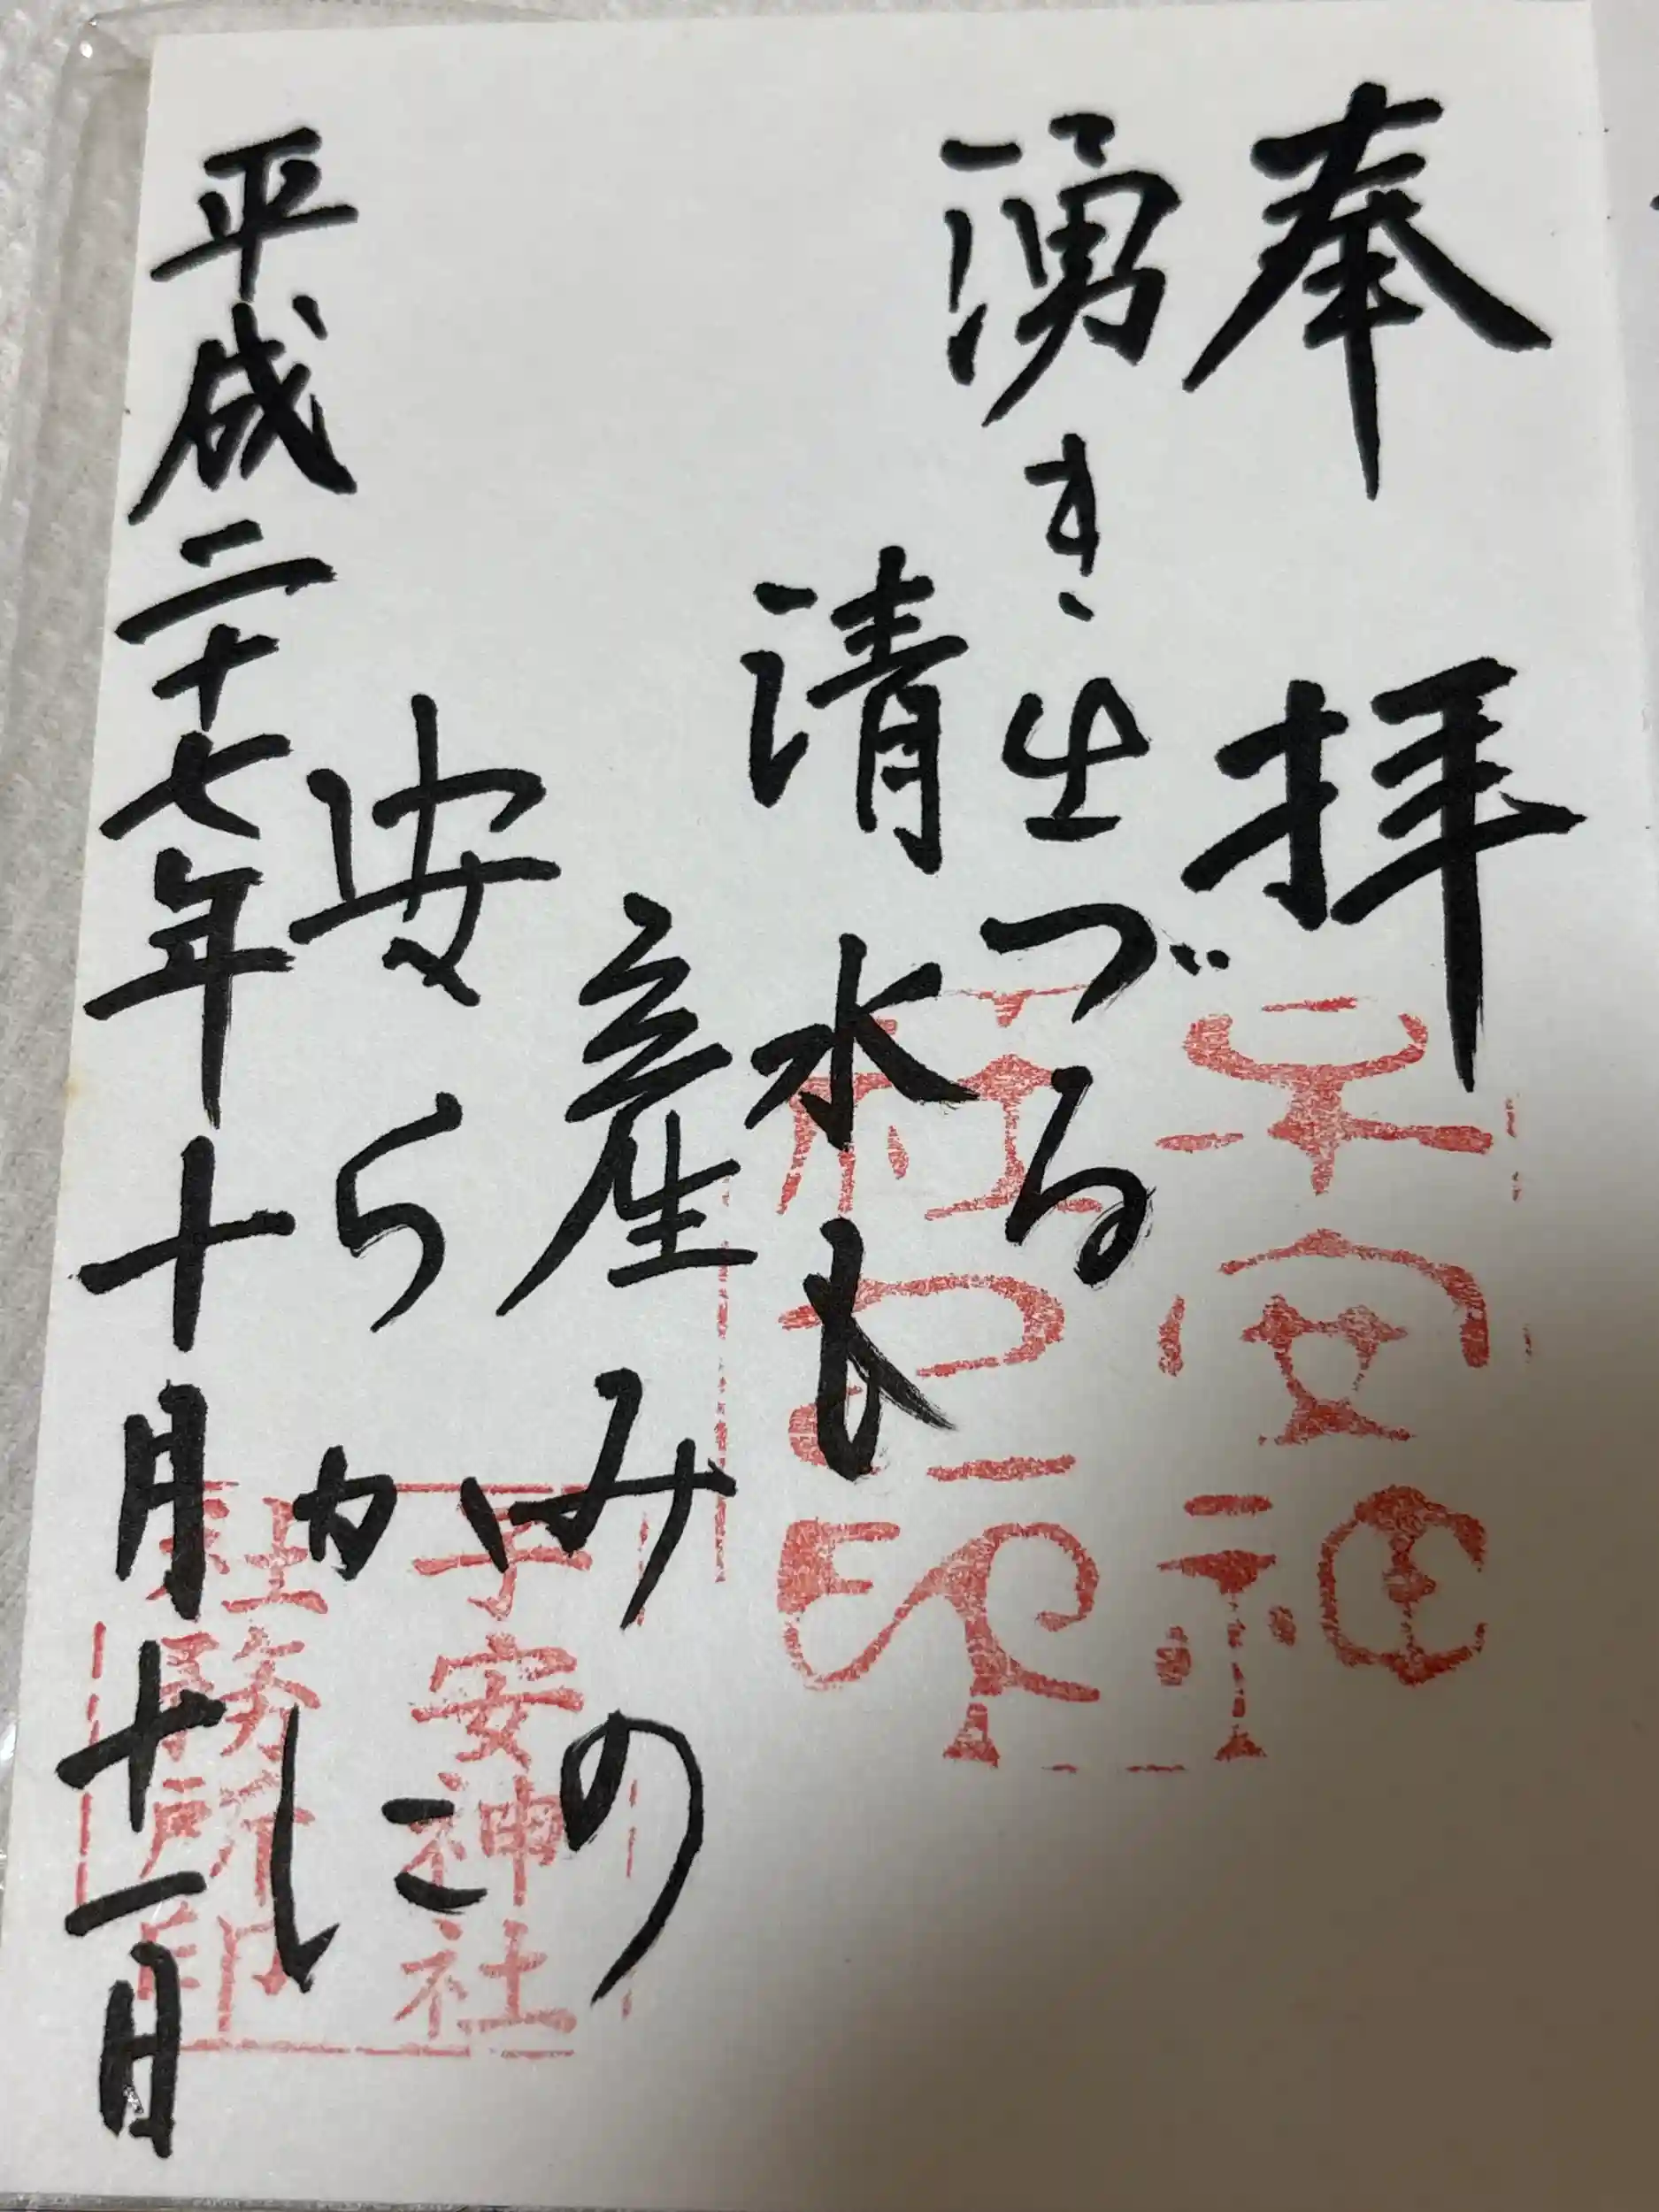 奉拝
湧き出づる
清水も
産みの
安らかに
平成二十七年十月十一日
子安神
子安神社
社務所印